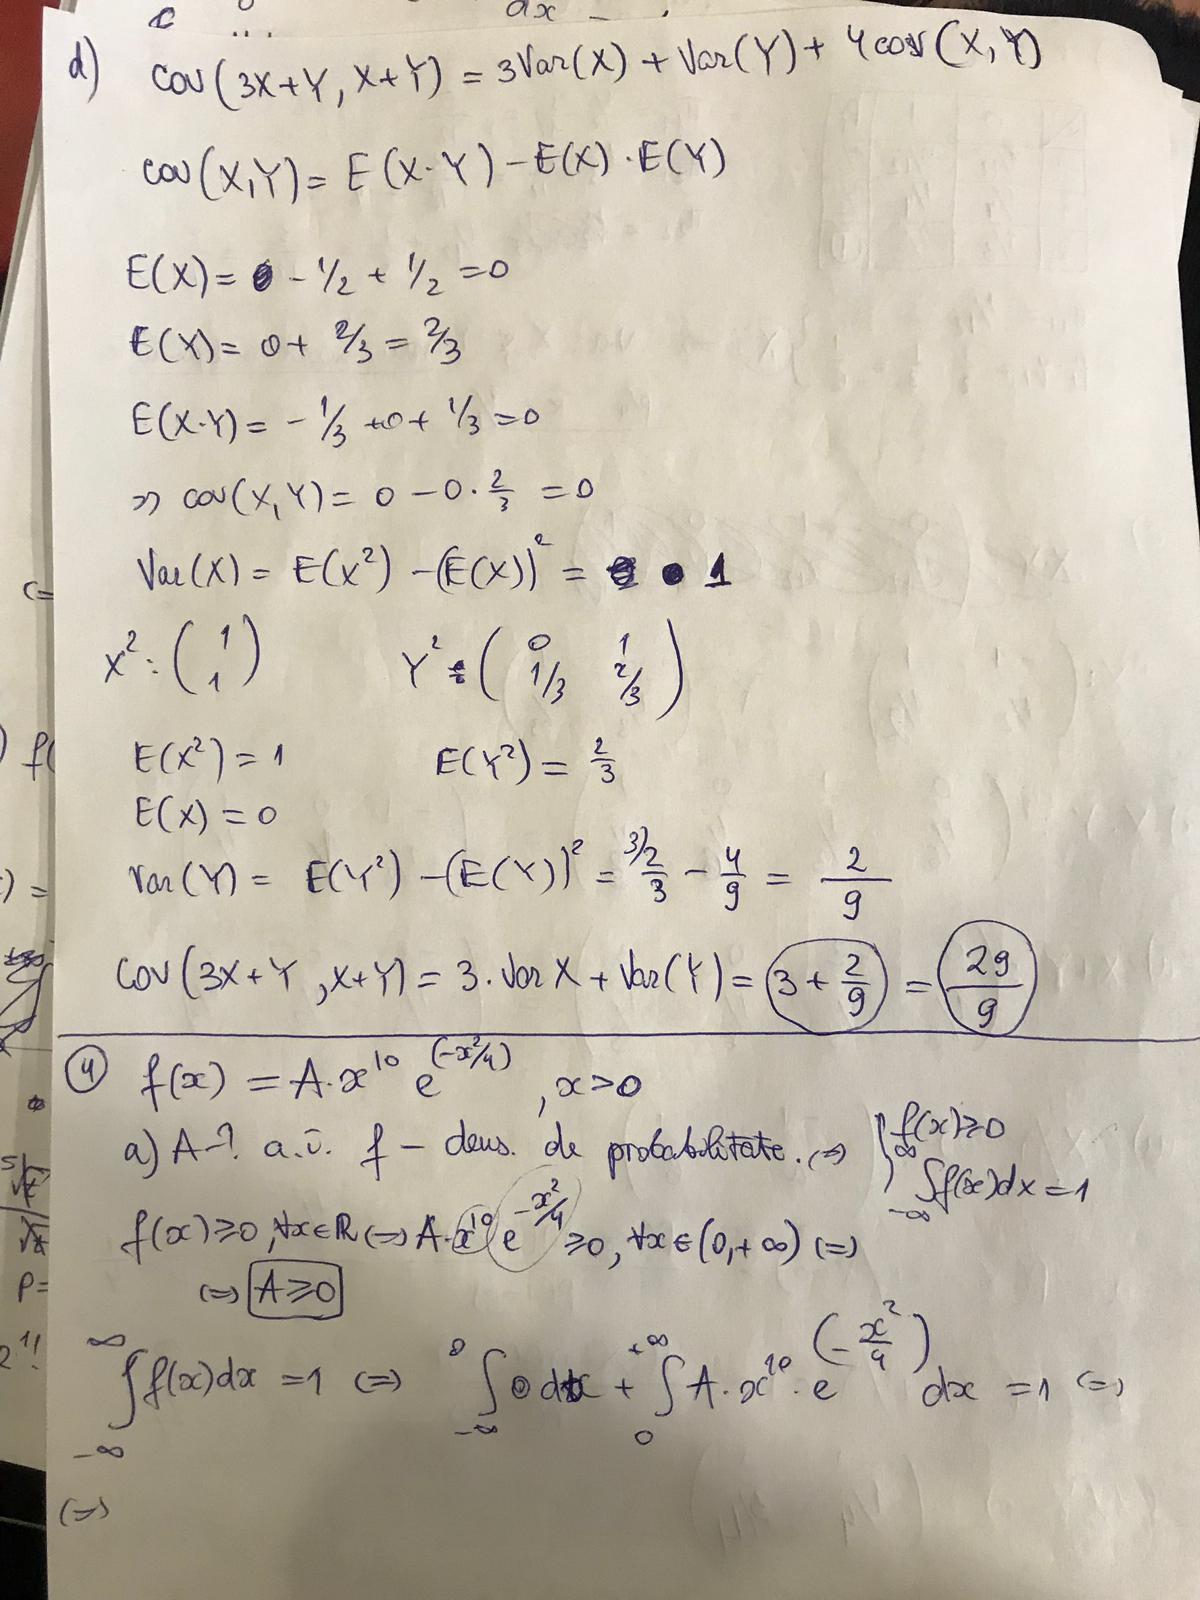 d) cov(3X+Y, X+Y) = 3Var(X) + Var(Y) + 4cov(X,Y)
cov(X,Y) = E(X·Y) - E(X)·E(Y)
E(X) = -1/2 + 1/2 = 0
E(Y) = 0 + 2/3 = 2/3
E(X·Y) = -1/3 + 0 + 1/3 = 0
=> cov(X,Y) = 0 - 0·2/3 = 0
Var(X) = E(X²) - (E(X))² = 1
X² : (1 / 1) Y² : (0 1 / 1/3 2/3)
E(X²) = 1 E(Y²) = 2/3
E(X) = 0
Var(Y) = E(Y²) - (E(Y))² = ³⁾2/3 - 4/9 = 2/9
Cov(3X+Y, X+Y) = 3·Var X + Var(Y) = 3 + 2/9 = 29/9
4 f(x) = A·x¹⁰ e^(-x²/4), x>0
a) A-? a.î. f - dens. de probabilitate. (=> { f(x)≥0
∫_{-∞}^{∞} f(x)dx = 1
f(x)≥0, ∀x∈ℝ (=> A·x¹⁰ e^{-x²/4} ≥0, ∀x∈(0,+∞) (=>
(=> A≥0
∫_{-∞}^{∞} f(x)dx = 1 (=> ∫_{-∞}^{0} 0 dx + ∫_{0}^{+∞} A·x¹⁰·e^(-x²/4) dx = 1 (=>
(=>